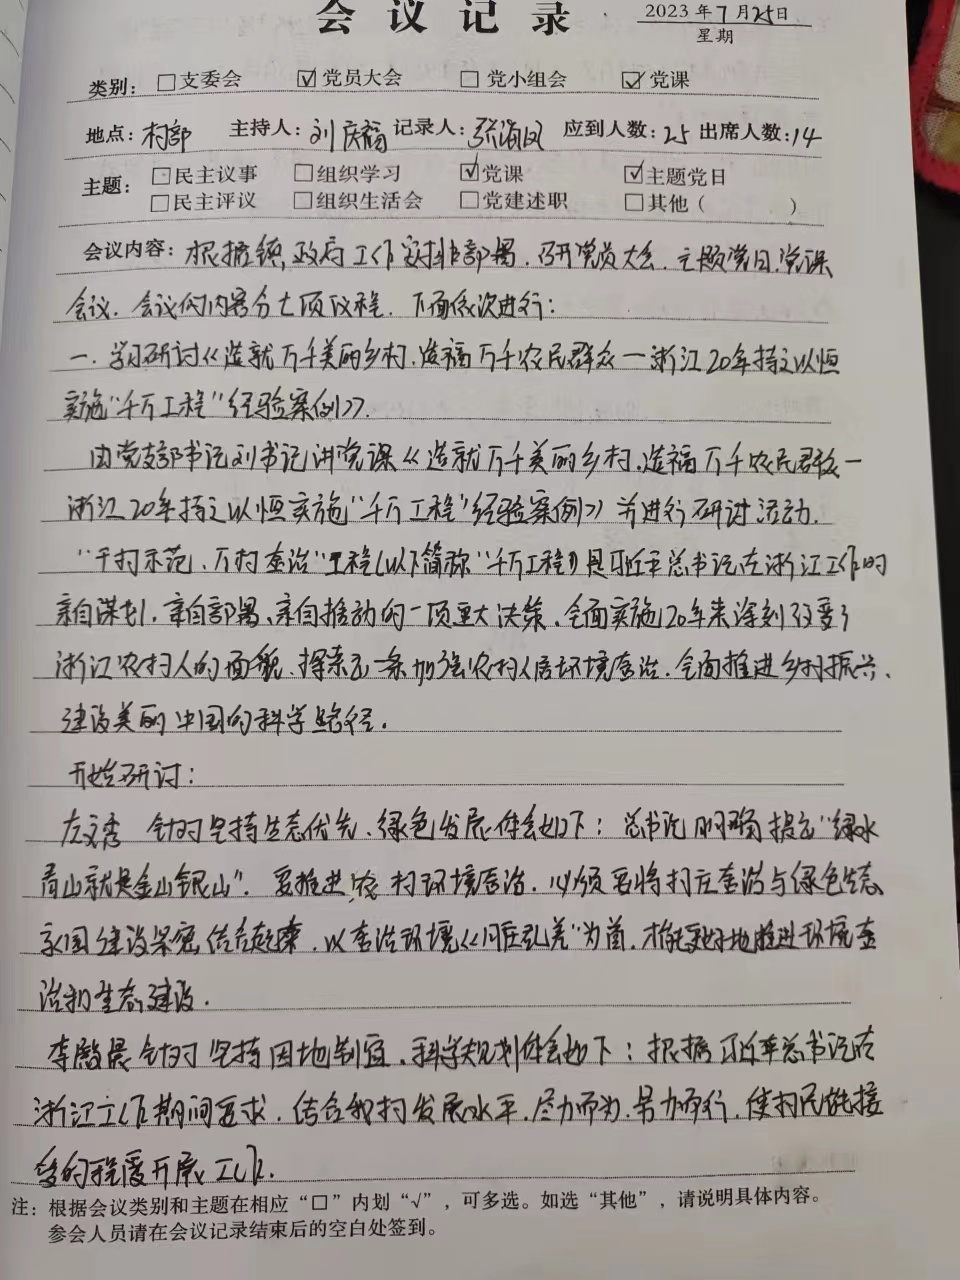 会议记录
2023年7月25日
星期
类别：□支委会 ☑党员大会 □党小组会 ☑党课
地点：村部 主持人：刘庆福 记录人：张海凤 应到人数：25 出席人数：14
主题：□民主议事 □组织学习 ☑党课 ☑主题党日
□民主评议 □组织生活会 □党建述职 □其他（ ）
会议内容：根据镇政府工作安排部署，召开党员大会、主题党日、党课
会议。会议的内容分七项议程，下面依次进行：
一、学习研讨《造就万千美丽乡村，造福万千农民群众—浙江20年持之以恒
实施“千万工程”经验案例》。
由党支部书记刘书记讲党课《造就万千美丽乡村，造福万千农民群众—
浙江20年持之以恒实施“千万工程”经验案例》并进行研讨活动。
“千村示范、万村整治”工程(以下简称“千万工程”)是习近平总书记在浙江工作时
亲自谋划、亲自部署、亲自推动的一项重大决策，全面实施20年来深刻改变了
浙江农村人的面貌，探索出一条加强农村人居环境整治，全面推进乡村振兴、
建设美丽中国的科学路径。
开始研讨：
左文秀 针对坚持生态优先、绿色发展体会如下：总书记明确提出“绿水
青山就是金山银山”。要推进农村环境整治，必须要将村庄整治与绿色生态
家园建设紧密结合起来，以整治环境《脏乱差》为首，才能更好地推进环境整
治和生态建设。
李殿晨针对坚持因地制宜、科学规划体会如下：根据习近平总书记在
浙江工作期间要求，结合我村发展水平，尽力而为、量力而行，使村民能接
受的程度开展工作。
注：根据会议类别和主题在相应“□”内划“√”，可多选。如选“其他”，请说明具体内容。
参会人员请在会议记录结束后的空白处签到。